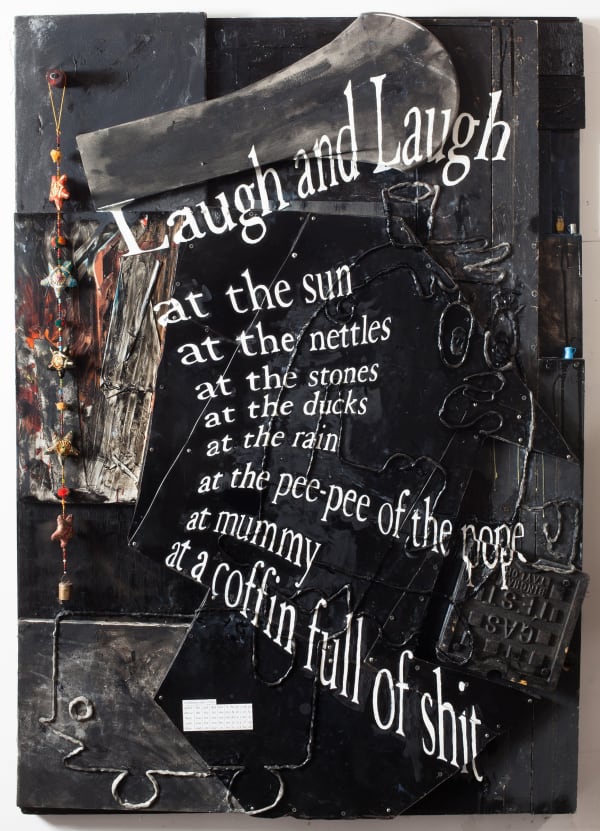 Laugh and Laugh
at the sun
at the nettles
at the stones
at the ducks
at the rain
at the pee-pee of the pope
at mummy
at a coffin full of shit